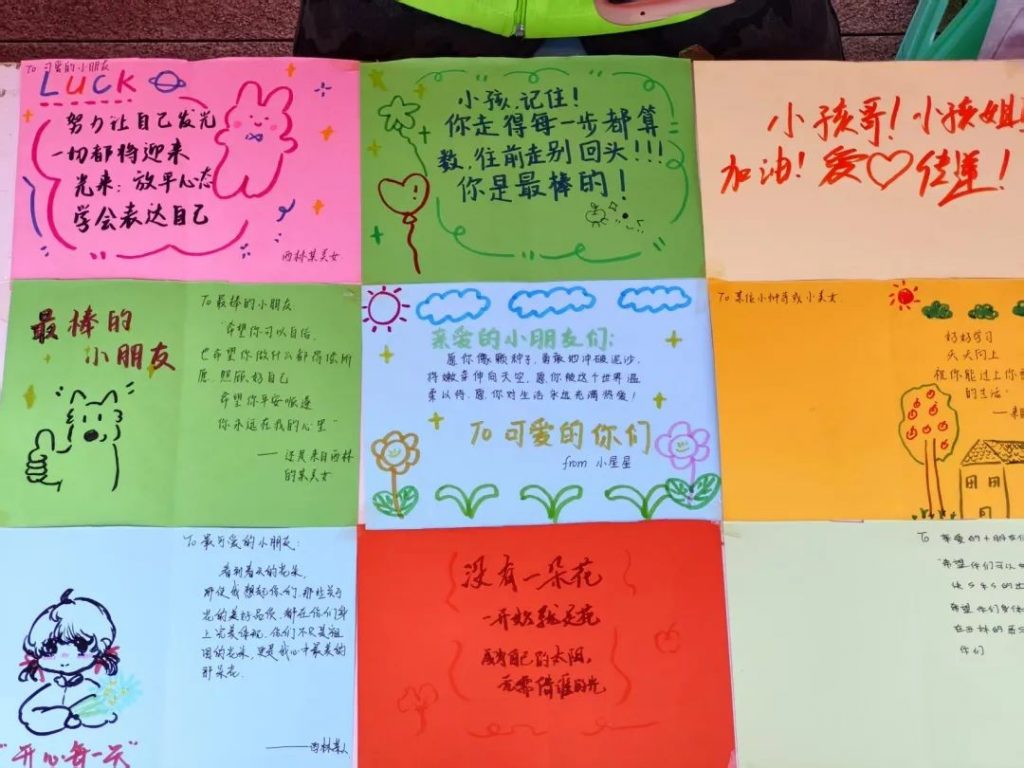 To 可爱的小朋友
LUCK
努力让自己发光
一切都将迎来
光来：放平心态
学会表达自己
西林某美女
小孩，记住！
你走得每一步都算
数，往前走别回头！！！
你是最棒的！
小孩哥！小孩姐
加油！爱♡佳莲！
最棒的
小朋友
To 最棒的小朋友
希望你可以自信
也希望你做什么都得偿所
愿，照顾好自己
希望你平安顺遂
你永远在我的心里
——还是来自西林
的某美女
亲爱的小朋友们：
愿你像颗种子，勇敢地冲破泥沙，
将嫩芽伸向天空，愿你被这个世界温
柔以待，愿你对生活永远充满热爱！
To 可爱的你们
from 小星星
To 某位小帅哥或小美女
好好学习
天天向上
祝你能过上你
的生活
To 最可爱的小朋友：
看到春天的花朵，
那使我想起你们，那些关于
花的美好品质，都在你们身
上完美体现，你们不只是祖
国的花朵，更是我心中最美的
那朵花.
——西林某人
"开心每一天"
没有一朵花
一开始就是花
自己的太阳，
无需借谁的光
To 亲爱的小朋友们
希望你们可以
希望你们身体
在西林的
你们